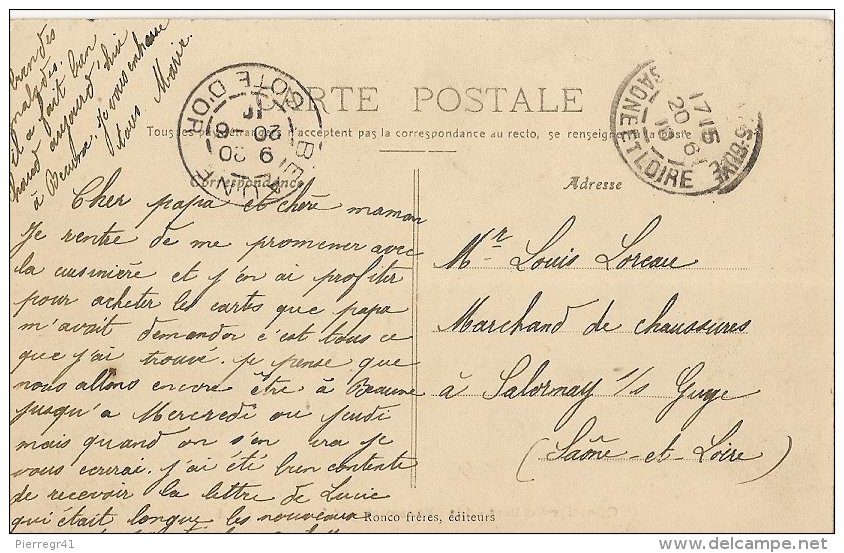 CARTE POSTALE
Tous les pays étrangers n'acceptent pas la correspondance au recto, se renseigner à la poste
Correspondance
Adresse
BEAUNE
COTE D'OR
20 6
SAONE ET LOIRE
17 15
20 6
10
Cher papa et chère maman
Je rentre de me promener avec
la cuisinière et j'en ai profiter
pour acheter les cartes que papa
m'avait demander c'est tous ce
que j'ai trouve. je pense que
nous allons encore être à Beaune
jusqu'a Mercredi ou jeudi
mais quand on s'en ira je
vous ecrirai. j'ai été bien contente
de recevoir la lettre de Lucie
qui était longue les nouveaux
grandes
malades.
il a fait bien
chaud aujourd'hui
à Beaune. je vous embrasse
tous Marie.
Mr Louis Loreau
Marchand de chaussures
à Salornay s/s Guye
(Saône-et-Loire)
Ronco frères, éditeurs
Pierregr41
delcampe.net